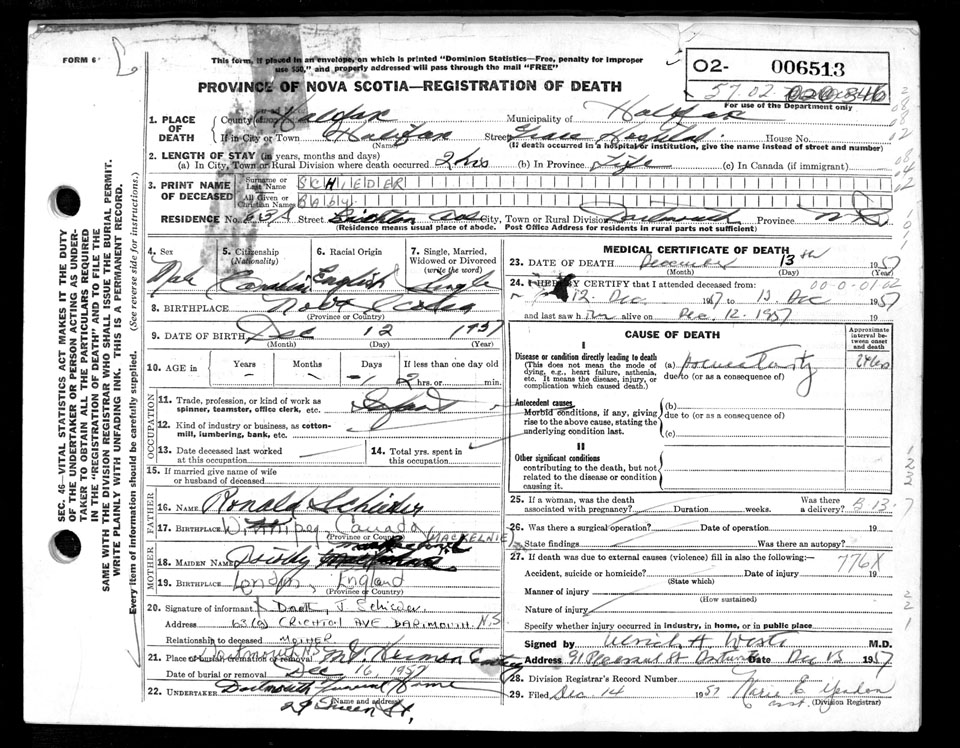 FORM 6
This form, if placed in an envelope, on which is printed "Dominion Statistics—Free, penalty for improper
use $50," and properly addressed will pass through the mail "FREE"
PROVINCE OF NOVA SCOTIA—REGISTRATION OF DEATH
O2- 006513
57.02.
For use of the Department only
1. PLACE OF DEATH
County Halifax Municipality of Halifax
If in City or Town Halifax Street Grace Hospital House No.
(Name) (If death occurred in a hospital or institution, give the name instead of street and number)
2. LENGTH OF STAY (in years, months and days)
(a) In City, Town or Rural Division where death occurred (b) In Province Life (c) In Canada (if immigrant)
3. PRINT NAME OF DECEASED
Surname or Last Name SCHIEDER
All Given or Christian Names BABY
RESIDENCE No. Street City, Town or Rural Division Dartmouth Province N.S.
(Residence means usual place of abode. Post Office Address for residents in rural parts not sufficient)
4. Sex 5. Citizenship (Nationality) 6. Racial Origin 7. Single, Married, Widowed or Divorced (write the word)
Male Canadian English Single
8. BIRTHPLACE Nova Scotia
(Province or Country)
9. DATE OF BIRTH Dec 12 1957
(Month) (Day) (Year)
10. AGE Years Months Days If less than one day old
hrs. or min.
11. Trade, profession, or kind of work as spinner, teamster, office clerk, etc. Infant
12. Kind of industry or business, as cotton-mill, lumbering, bank, etc.
13. Date deceased last worked at this occupation
14. Total yrs. spent in this occupation
OCCUPATION
15. If married give name of wife or husband of deceased
FATHER
16. NAME Ronald Schieder
17. BIRTHPLACE Winnipeg Canada
(Province or Country)
MOTHER
(MACKELNIE)
18. MAIDEN NAME
19. BIRTHPLACE London, England
(Province or Country)
20. Signature of informant J Schieder
Address 63(a) CRICHTON AVE DARTMOUTH N.S
Relationship to deceased MOTHER
Dartmouth N.S
21. Place of burial, cremation or removal Mt. Hermon Cemetery
Date of burial or removal Dec 16 1957
22. UNDERTAKER Dartmouth Funeral Home
(Name and address)
29 Queen St.
MEDICAL CERTIFICATE OF DEATH
23. DATE OF DEATH December 13th 1957
(Month) (Day) (Year)
24. I HEREBY CERTIFY that I attended deceased from:
12. Dec 1957 to 13 Dec 1957
and last saw him alive on Dec. 12. 1957
CAUSE OF DEATH
Approximate interval between onset and death
I
Disease or condition directly leading to death
(This does not mean the mode of dying, e.g., heart failure, asthenia, etc. It means the disease, injury, or complication which caused death.)
(a)
due to (or as a consequence of)
Antecedent causes
Morbid conditions, if any, giving rise to the above cause, stating the underlying condition last.
(b)
due to (or as a consequence of)
(c)
II
Other significant conditions
contributing to the death, but not related to the disease or condition causing it.
25. If a woman, was the death associated with pregnancy? Duration weeks. Was there a delivery? B 13.
26. Was there a surgical operation? Date of operation 19
State findings Was there an autopsy?
27. If death was due to external causes (violence) fill in also the following:— 776X
Accident, suicide or homicide? Date of injury 19
(State which)
Manner of injury
(How sustained)
Nature of injury
Specify whether injury occurred in industry, in home, or in public place
Signed by Ulrich A Weste M.D.
Address 91 Pleasant St Date Dec 13 1957
28. Division Registrar's Record Number
29. Filed Dec 14 1957 Marie E.
asst. (Division Registrar)
SEC. 46—VITAL STATISTICS ACT MAKES IT THE DUTY
OF THE UNDERTAKER OR PERSON ACTING AS UNDER-
TAKER TO OBTAIN ALL THE PARTICULARS REQUIRED
IN THE "REGISTRATION OF DEATH" AND TO FILE THE
SAME WITH THE DIVISION REGISTRAR WHO SHALL ISSUE THE BURIAL PERMIT.
WRITE PLAINLY WITH UNFADING INK. THIS IS A PERMANENT RECORD.
Every item of information should be carefully supplied. (See reverse side for instructions.)